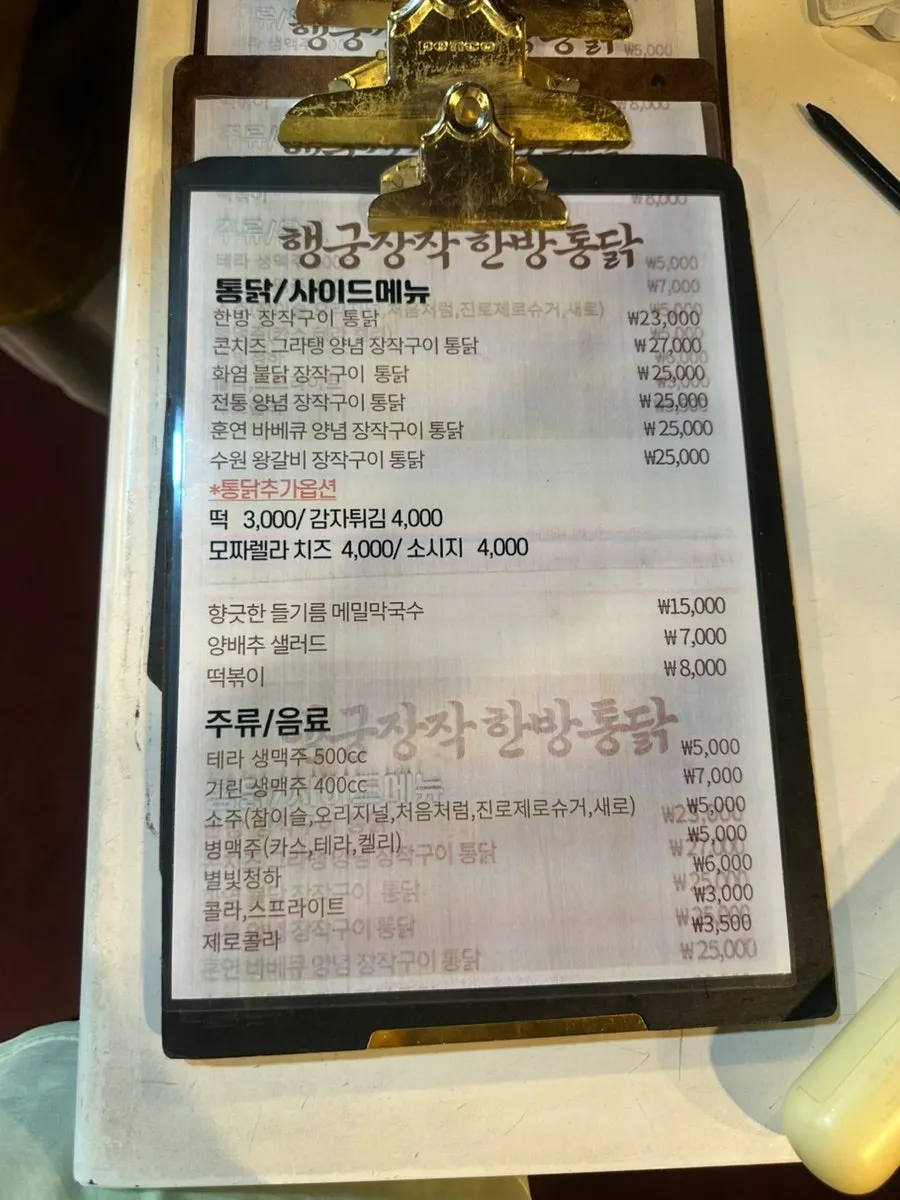 행궁장작 한방통닭
₩5,000
₩8,000
행궁장작 한방통닭
통닭/사이드메뉴
한방 장작구이 통닭 ₩23,000
콘치즈 그라탱 양념 장작구이 통닭 ₩27,000
화염 불닭 장작구이 통닭 ₩25,000
전통 양념 장작구이 통닭 ₩25,000
훈연 바베큐 양념 장작구이 통닭 ₩25,000
수원 왕갈비 장작구이 통닭 ₩25,000
*통닭추가옵션
떡 3,000/ 감자튀김 4,000
모짜렐라 치즈 4,000/ 소시지 4,000
향긋한 들기름 메밀막국수 ₩15,000
양배추 샐러드 ₩7,000
떡볶이 ₩8,000
주류/음료
테라 생맥주 500cc ₩5,000
기린 생맥주 400cc ₩7,000
소주(참이슬,오리지널,처음처럼,진로제로슈거,새로) ₩5,000
병맥주(카스,테라,켈리) ₩5,000
별빛청하 ₩6,000
콜라,스프라이트 ₩3,000
제로콜라 ₩3,500